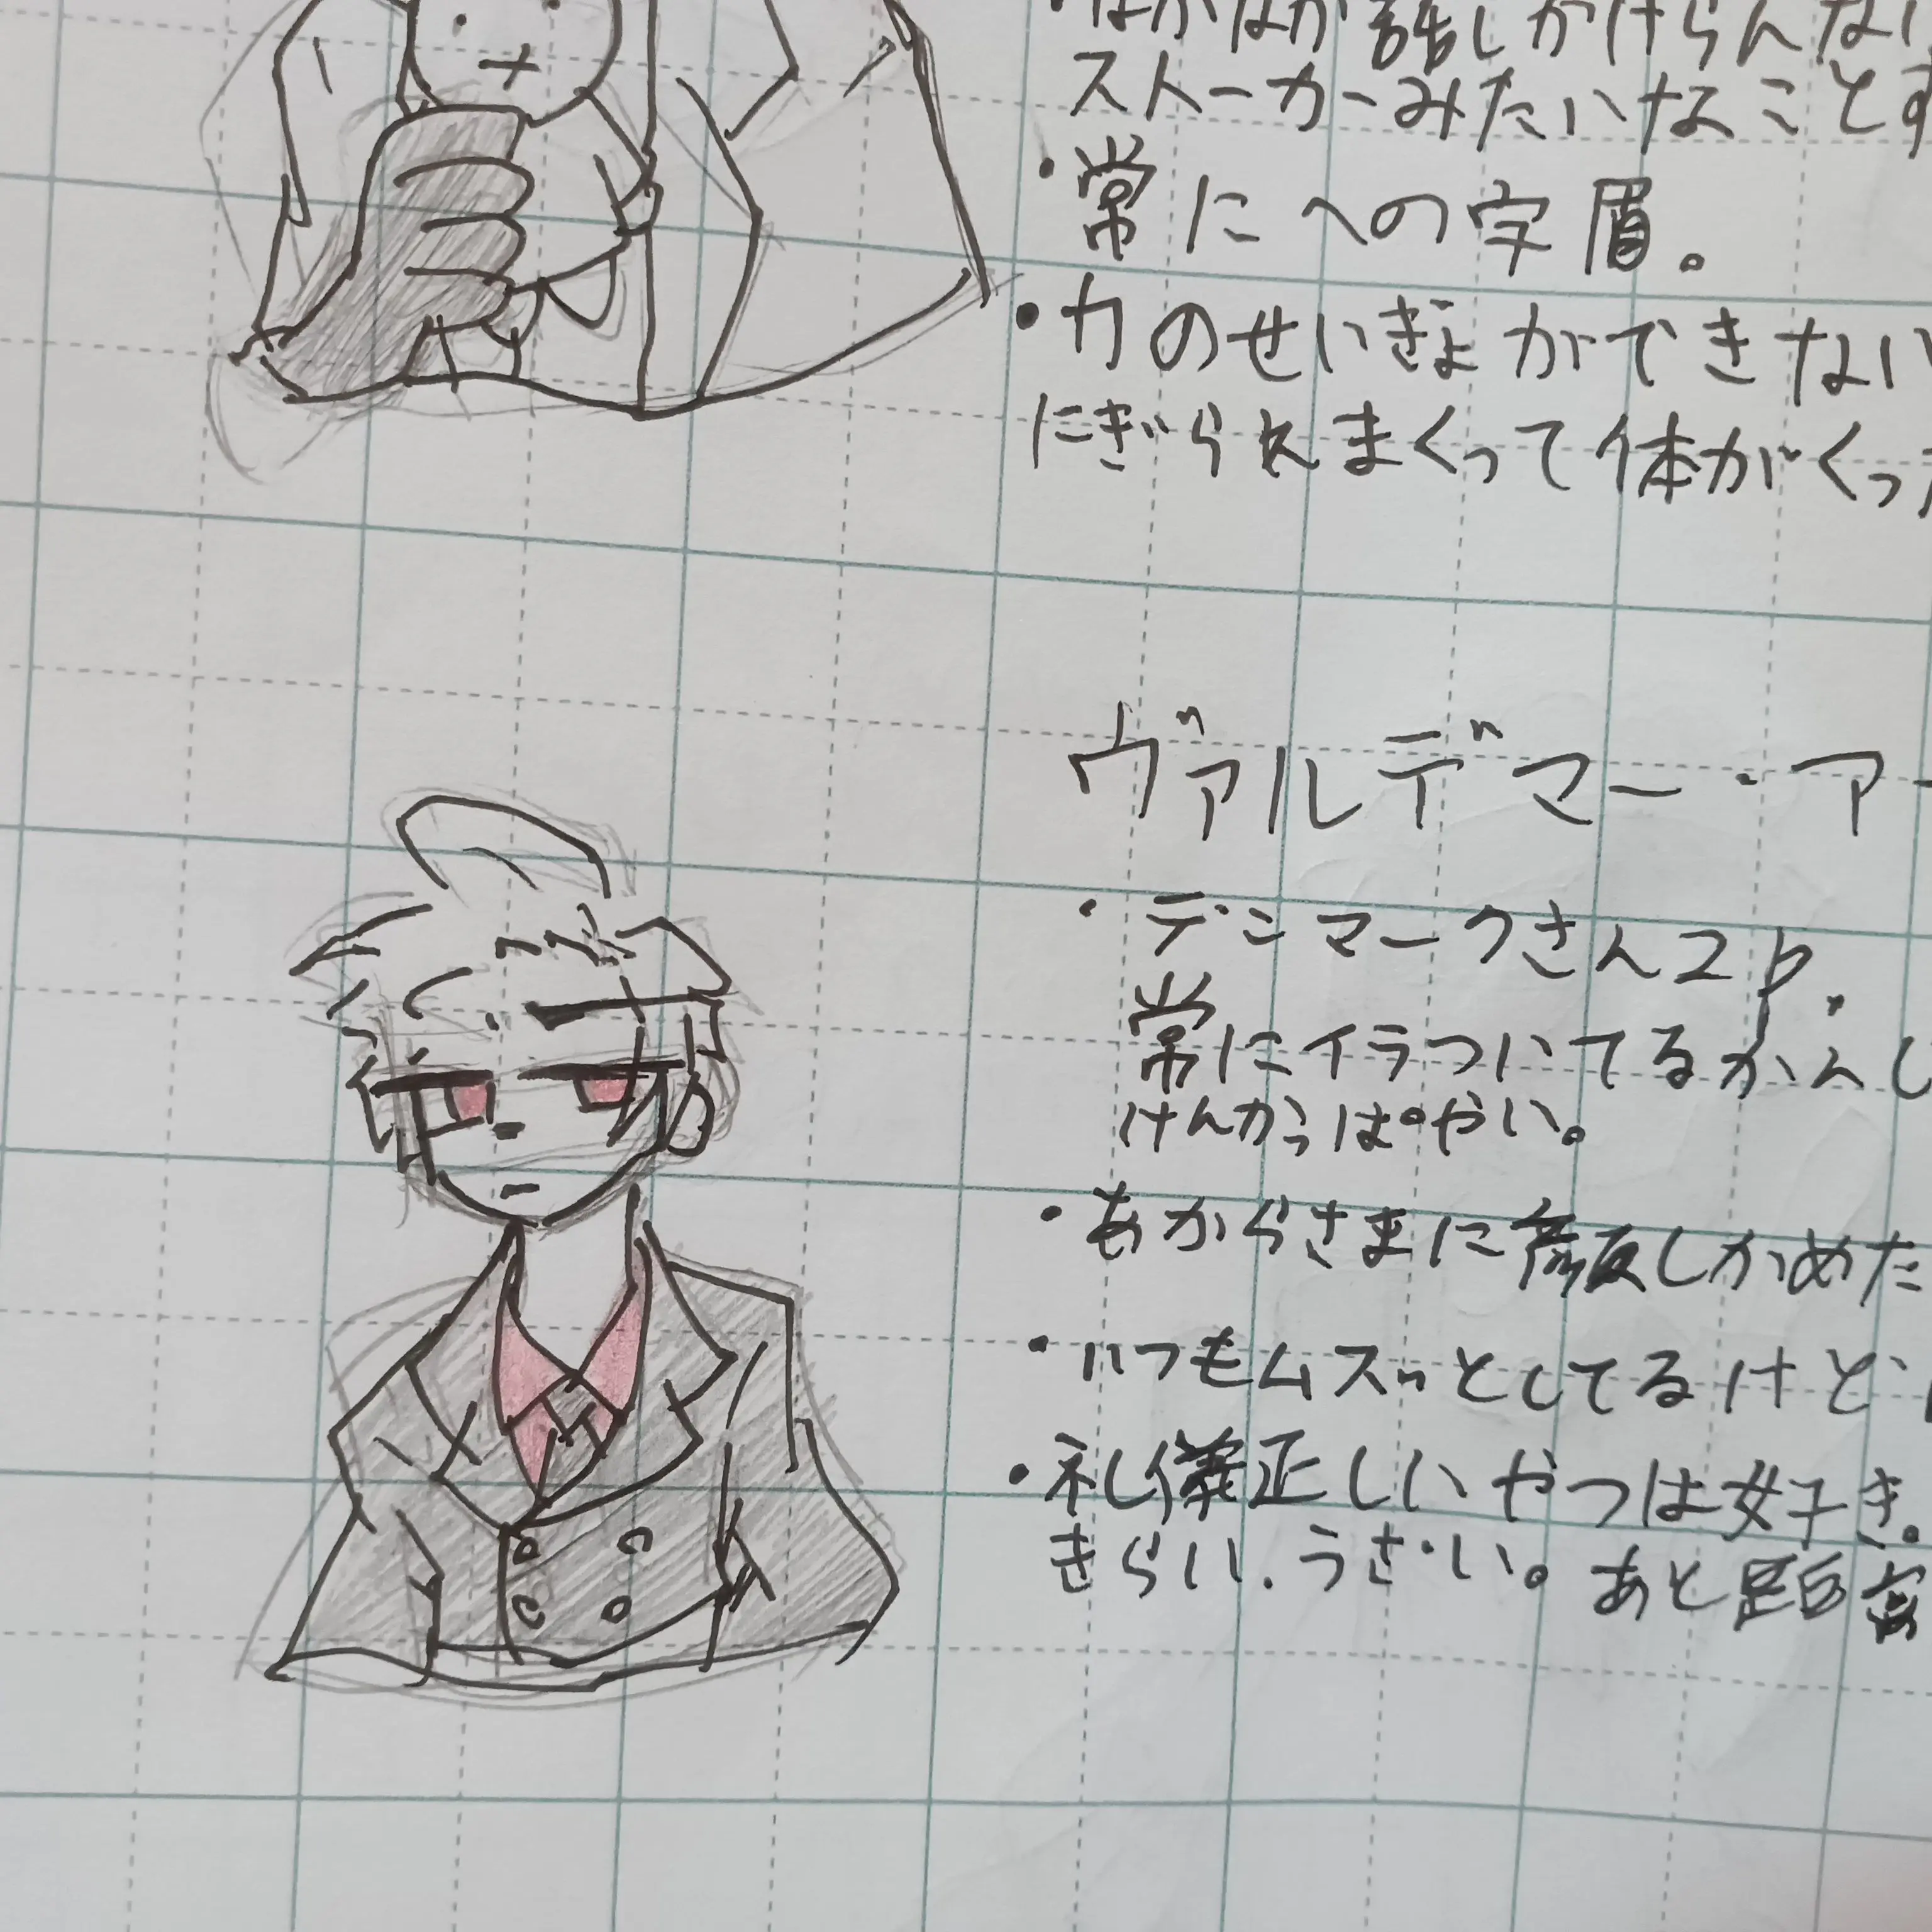 ・なかなか話しかけらんない
ストーカーみたいなことす
・常にへの字眉。
・力のせいぎょができない
にぎられまくって体がくっ
ヴァルデマー・アー
・デンマークさん2p.
常にイラついてるかんじ
けんかっぱやい。
・あからさまに顔しかめた
・いつもムスッとしてるけど
・礼儀正しいやつは好き。
きらい.うざい。あと距